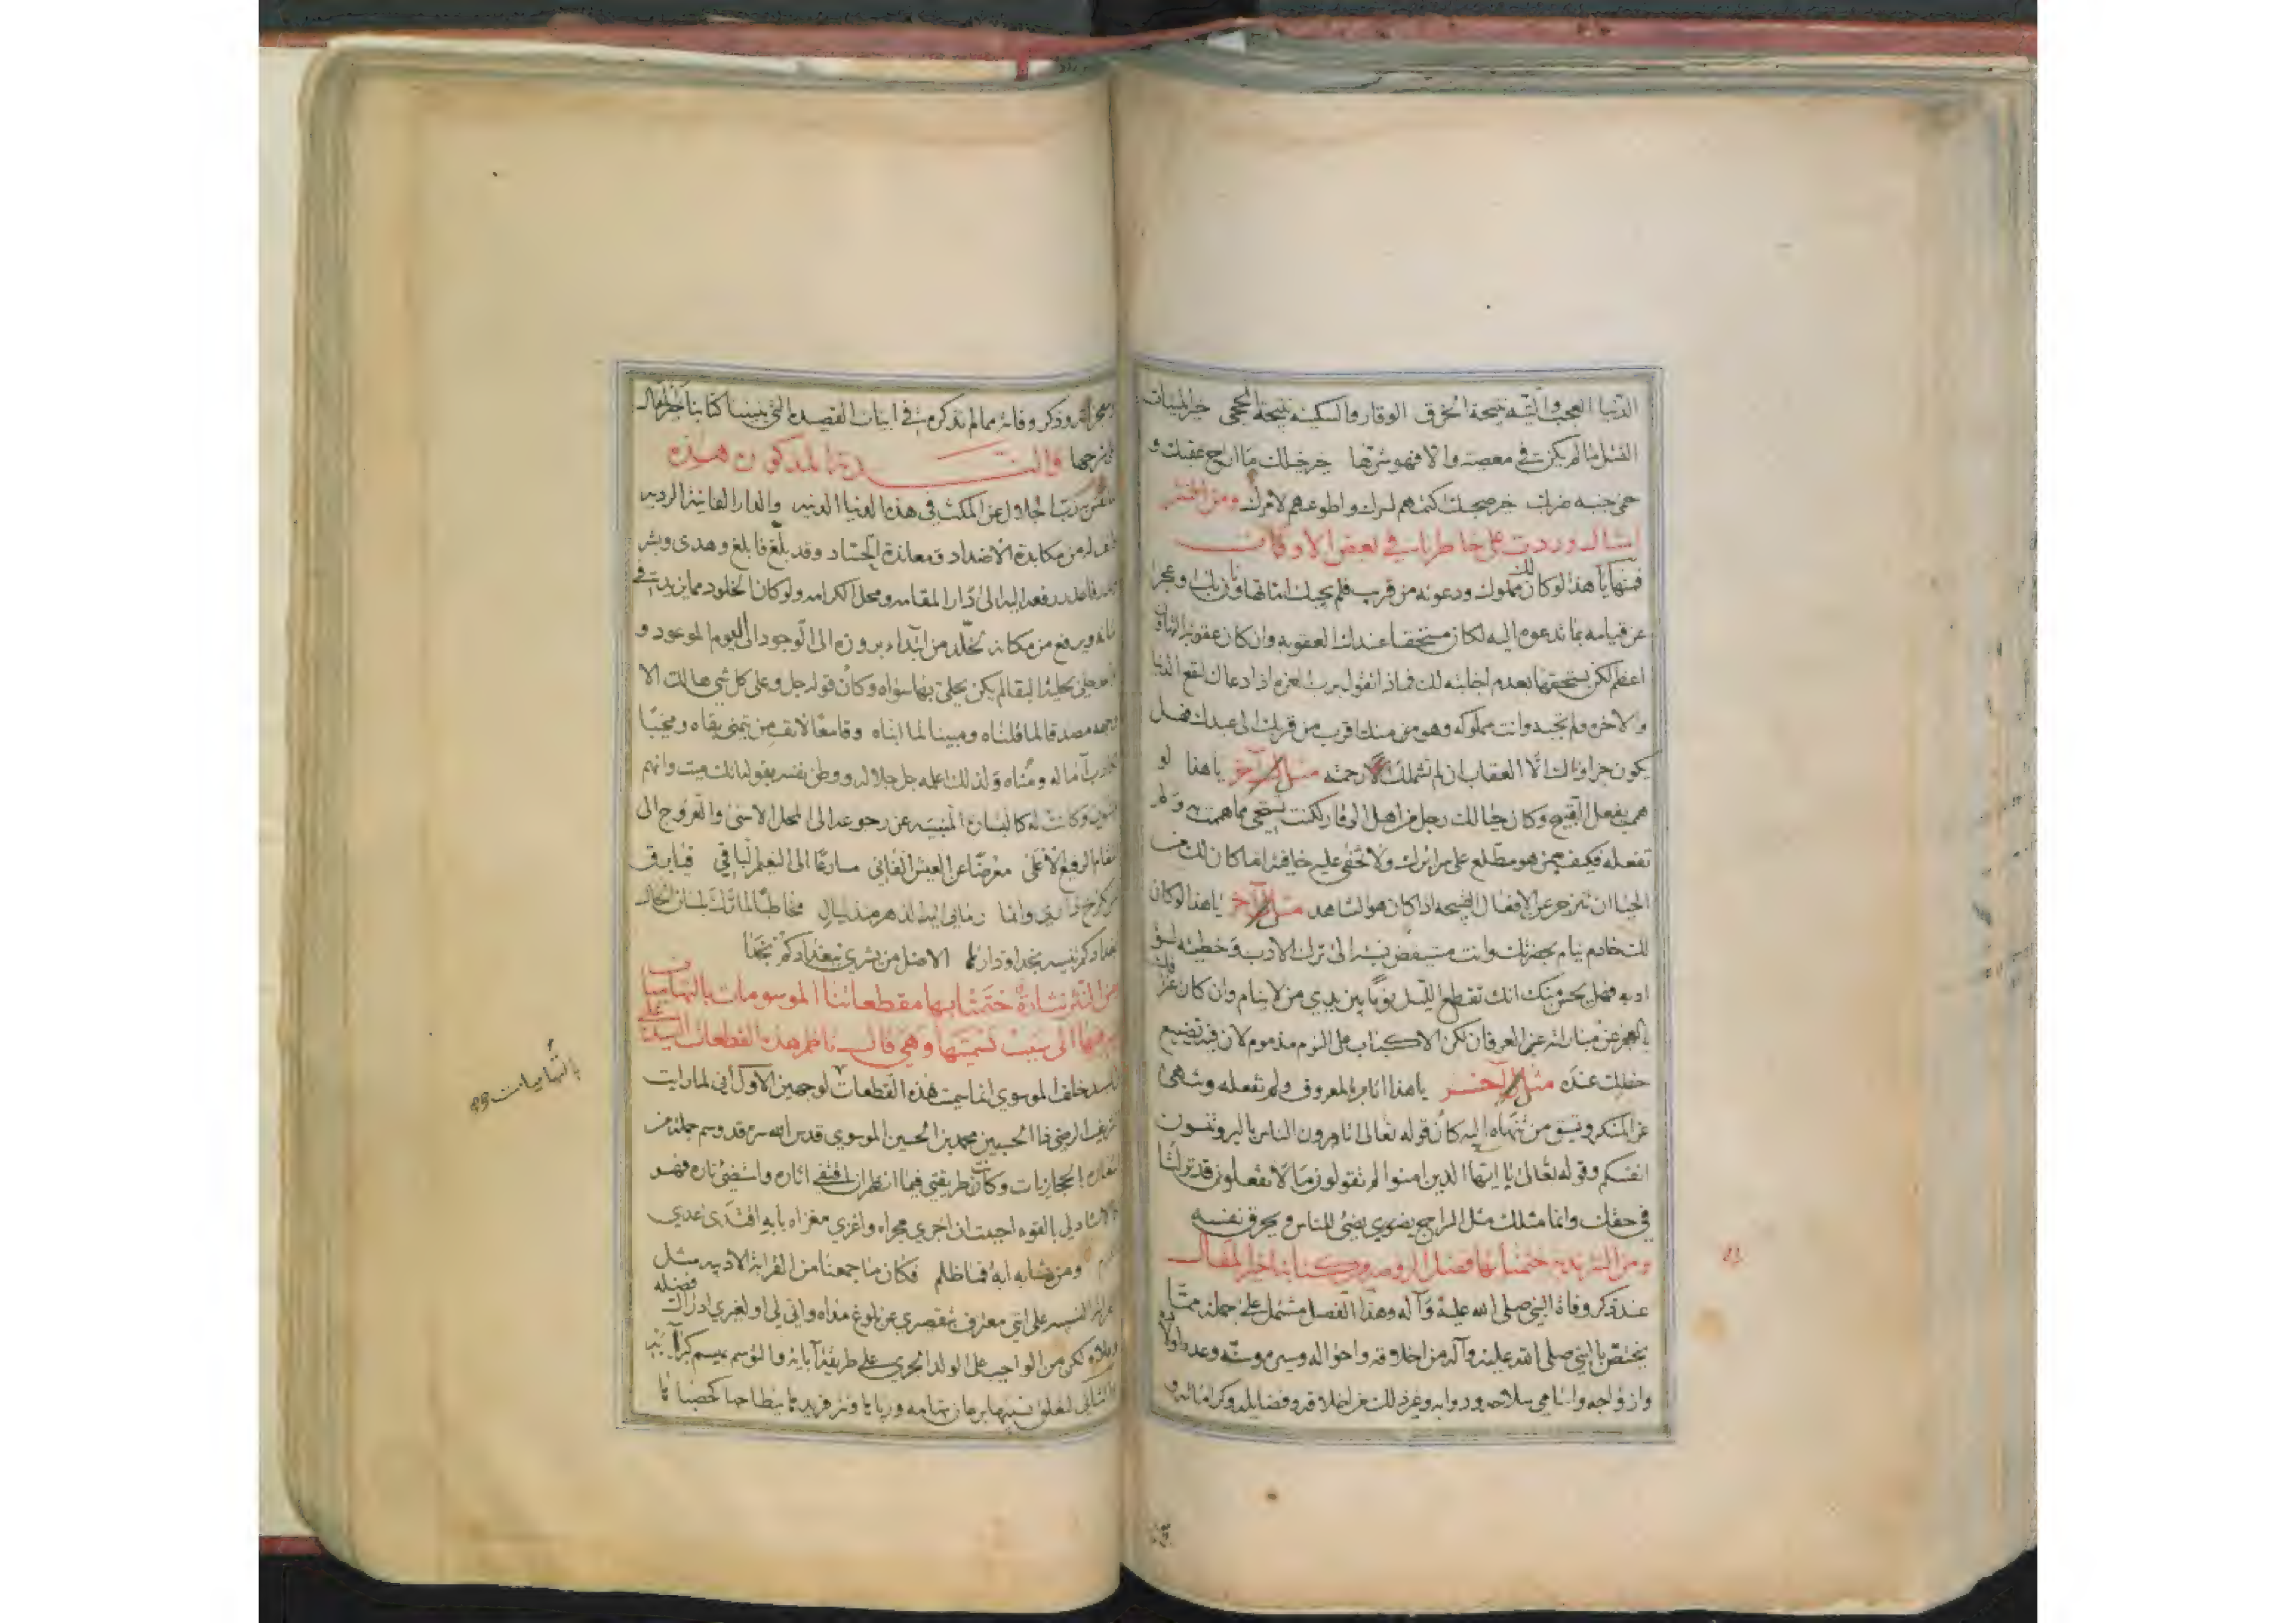 الدنيا العجب والتيه نتيجة الخرق الوقار والسكينه نتيجة الحجى خير المبيات
القتل ما لم يكن في معصيه والا فهو شرها خير خلك ما اراح عقبك و
حمى جنبه ضرك خير صحبك اكتمهم لسرك واطوعهم لامرك ومن النثر
امثال وردت على خاطر بات في بعض الاوقات
فمنها يا هذا لو كان لك مملوك ودعوته من قرب فلم يجبك اما تهاونا بك او عجزا
عن قيامه بما تدعوه اليه لكان مستحقا عندك العقوبه وان كان عقوبة التهاون
اعظم لكن يستحقها بعدم اجابته لك فماذا تقول برب العزه اذا دعاك لنفع الدنيا
والاخره ولم تجبه وانت مملوكه وهو منك اقرب من قربك الى عبدك فهل
يكون جزاؤك الا العقاب ان لم تشملك رحمته مثل آخر يا هذا لو
هممت بفعل القبيح وكان حيالك رجل من اهل الوقار لكنت تستحي مما هممت به ولم
تفعله فكيف بمن هو مطلع على سرائرك ولا تخفى عليه خافيه اما كان لك من
الحيا ان تنزجر عن الافعال القبيحه اذا كان هو الشاهد مثل آخر يا هذا لو كان
لك خادم ينام بحضرتك وانت مستيقض نسبته الى ترك الادب وخطيئه لسوء
ادبه فهل يحسن منك انك تقطع الليل نوما بين يدي من لا ينام وان كان عز
بالعز عن مباراته عز العرفان لكن الاكباب على النوم مذموم لان فيه تضييع
حظك عنده مثل آخر يا هذا اتامر بالمعروف ولم تفعله وتنهى
عن المنكر وتسبق من تنهاه اليه كان قوله تعالى اتامرون الناس بالبر وتنسون
انفسكم وقوله تعالى يا ايها الذين امنوا لم تقولون ما لا تفعلون قد نزلتا
في حقك وانما مثلك مثل السراج يضوي يضئ للناس ويحرق نفسه
ومن النثر نبذه ختمنا بها فصل الروضه من كتابنا خير المقال
عند ذكر وفاة النبي صلى الله عليه وآله وهذا الفصل مشتمل على جملة مما
يختص بالنبي صلى الله عليه وآله من اخلاقه واحواله وسن موته وعدد اولاده
وازواجه واسامي سلاحه ودوابه وغير ذلك من اخلاقه وفضايله وكراماته و
ومعجزاته وذكر وفاته مما لم نذكره في ابيات القصيده التي بنينا كتابنا خير المقال
على شرحها والنبذه المذكوره هذه
ربنا الجلال عن المكث في هذه الدنيا الدنيه والدار الفانيه الرديه
من مكابدة الاضداد ومعاندة الحساد وقد بلغ فابلغ وهدى وبشر
رفعه اليه الى دار المقامه ومحل الكرامه ولو كان الخلود مما يزيد في
شانه ويرفع من مكانه لخلد من ابتداء بروزه الى الوجود الى اليوم الموعود و
بحلية البقا لم يكن يحلى بها سواه وكان قوله جل وعلى كل شي هالك الا
وجهه مصدقا لما قلناه ومبينا لما ابناه وقامعا لانف من يتمنى بقاه ومخيبا
آماله ومناه ولذلك اعلمه جل جلاله ووطن نفسه بقوله انك ميت وانهم
ميتون وكانت له كالبشارة المنبيه عن رجوعه الى المحل الاسنى والعروج الى
المقام الرفيع الاعلى معرضا عن العيش الفاني سارعا الى النعيم الباقي
مخاطبا لما ترك بلسان الحال
بغدادكم
من النثر نشارة ختمنا بها مقطعاتنا الموسومات بالتهاميات
الى سبب تسميتها وهي قال ناظم هذه القطعات السيد علي
السيد خلف الموسوي انما سميت هذه القطعات لوجهين الاول اني لما رايت
الشريف الرضي ابا الحسن محمد بن الحسين الموسوي قدس الله سره قد وسم جملة من
اشعاره الحجازيات وكانت طريقتي فيما انظم ان اقتفي اثاره واستضئ ناره
بالقوه احببت ان اجري مجراه واغزي مغزاه بابه اقتدى عدي
ومن يشابه ابه فما ظلم فكان ما جمعنا من القرابة الادبيه مثل
النسبيه على انني معترف بتقصيري عن بلوغ مداه واني لي او لغيري ادراك فضله
وعلاه لكن من الواجب على الولد الجري على طريقة آبائه والتوسم بميسم كبرآئه
والثاني لتعلق نسبها
بالتهاميات